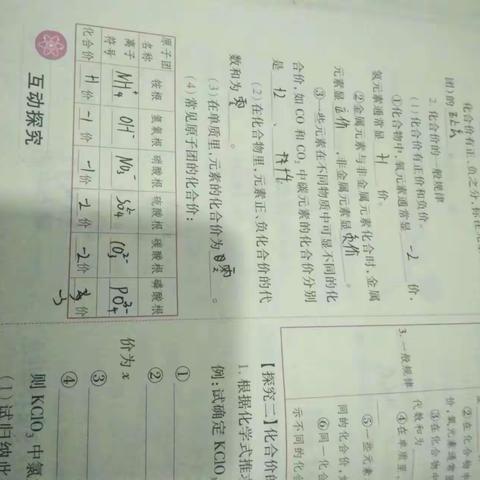 化合价有正、负之分,标在元
团)的
2. 化合价的一般规律
(1)化合价有正价和负价。
①化合物中,氧元素通常显 -2 价,
氢元素通常显 +1 价。
②金属元素与非金属元素化合时,金属
元素显 正价 ,非金属元素显 负价 。
③一些元素在不同物质中可显不同的化
合价,如 CO 和 CO₂ 中碳元素的化合价分别
是 +2 、 +4 。
(2)在化合物里,元素正、负化合价的代
数和为 零 。
(3)在单质里,元素的化合价为 零 。
(4)常见原子团的化合价:
原子团名称 铵根 氢氧根 硝酸根 硫酸根 碳酸根 磷酸根
离子符号 NH₄⁺ OH⁻ NO₃⁻ SO₄²⁻ CO₃²⁻ PO₄³⁻
化合价 +1价 -1价 -1价 -2价 -2价 -3价
互动探究
②在化合物中
价,氧元素通常显
③在化合物中
代数和为
3. 一般规律
④在单质里,
⑤一些元素
同的化合价,
⑥同一化合
示不同的化合
【探究二】化合价的
1. 根据化学式推
例:试确定 KClO
①
②
价为 x
③
④
则 KClO₃ 中氯
(1)试归纳此